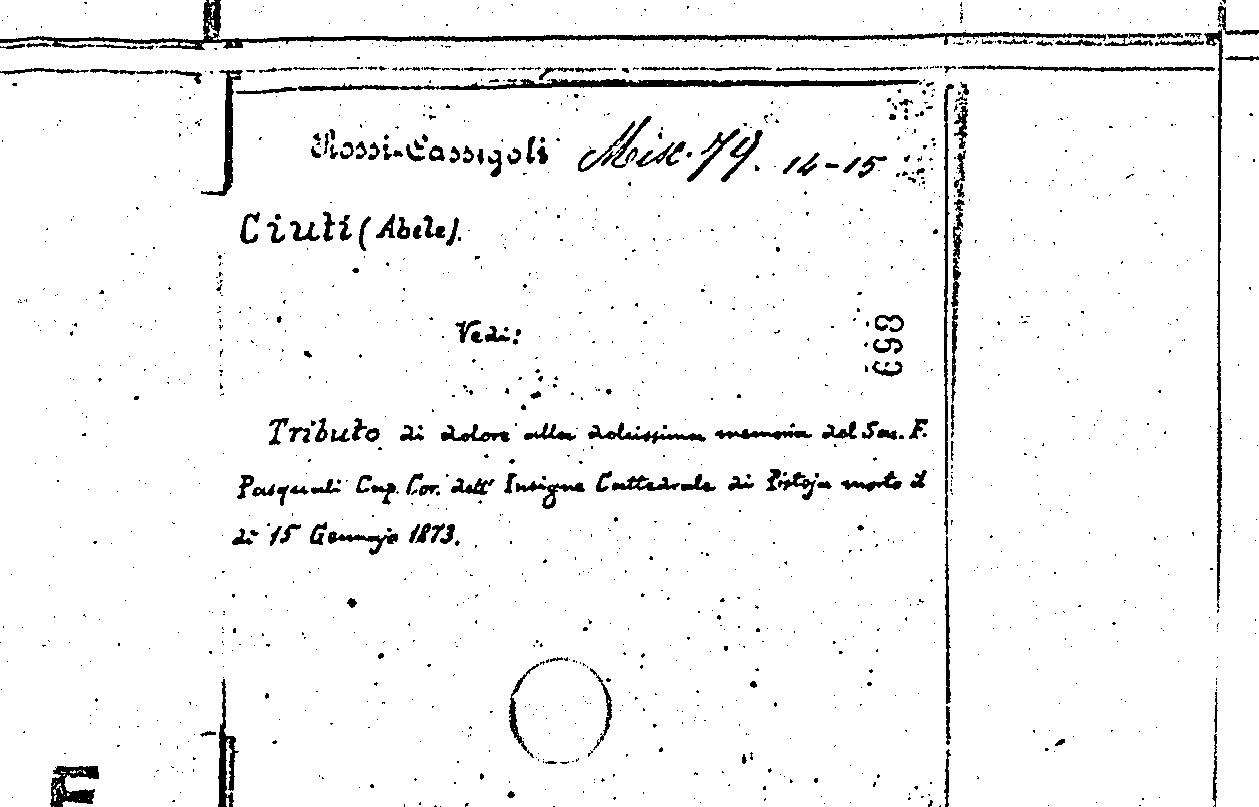 Rossi-Cassigoli Misc. 79. 14-15
Ciuti (Abele).
Vedi:
693
Tributo di dolore alla dolcissima memoria del Sac. F.
Pasquali Cap. Cor. dell' Insigne Cattedrale di Pistoja morto il
dì 15 Gennajo 1873.
E